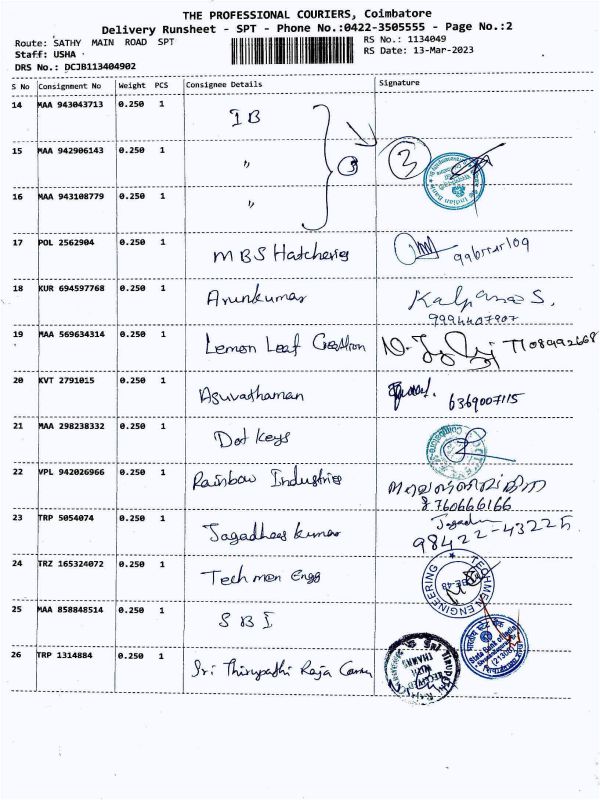 THE PROFESSIONAL COURIERS, Coimbatore
Delivery Runsheet - SPT - Phone No.:0422-3505555 - Page No.:2
Route: SATHY MAIN ROAD SPT
RS No.: 1134049
Staff: USHA
RS Date: 13-Mar-2023
DRS No.: DCJB113404902
S No Consignment No Weight PCS Consignee Details Signature
14 MAA 943043713 0.250 1 IB
15 MAA 942906143 0.250 1 " 3 3
16 MAA 943108779 0.250 1 "
17 POL 2562904 0.250 1 MBS Hatcheries
18 KUR 694597768 0.250 1 Arunkumar Kalpana S.
9994407907
19 MAA 569634314 0.250 1 Lemon Leaf Creation 7708992668
20 KVT 2791015 0.250 1 Asuvathaman 6369007115
21 MAA 298238332 0.250 1 Dot Keys
22 VPL 942026966 0.250 1 Rainbow Industries
8760666166
23 TRP 5054074 0.250 1 Jagadhees kumar
98422-43225
24 TRZ 165324072 0.250 1 Techmen Engg TECHMEN ENGINEERING
25 MAA 858848514 0.250 1 SBI State Bank of India
26 TRP 1314884 0.250 1 Sri Thirupathi Raja